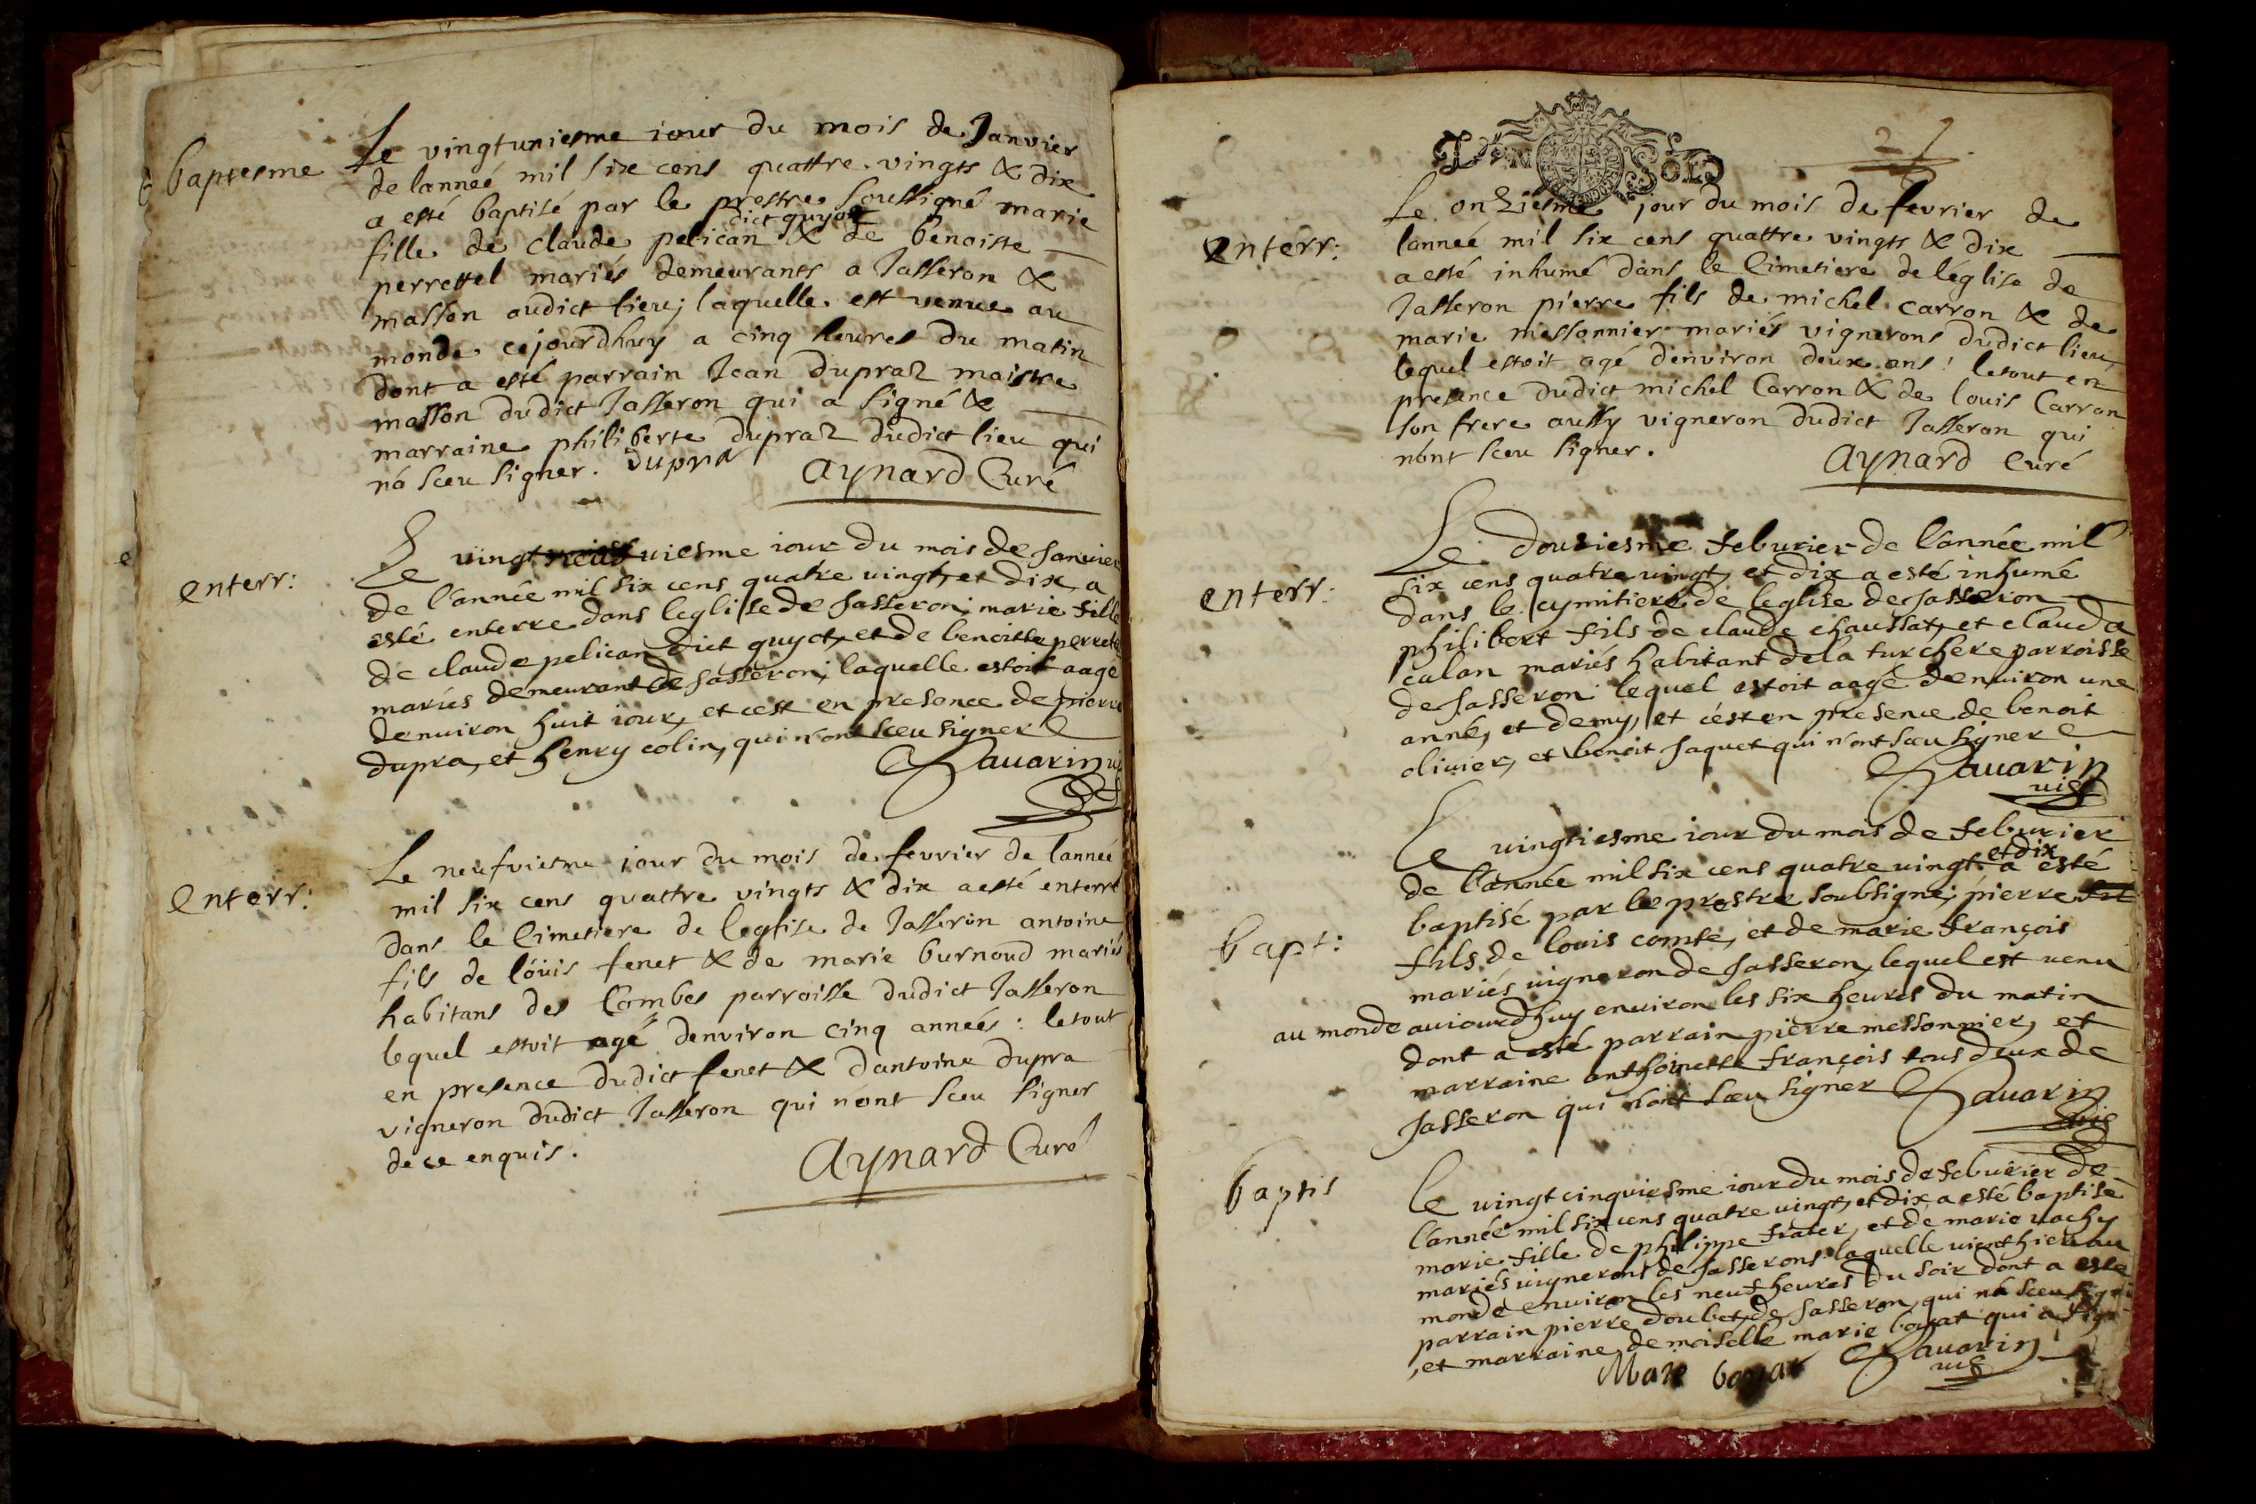 baptesme
Le vingtuniesme iour du mois de Janvier
de lanneé mil six cens quattre vingts & dix
a esté baptisé par le prestre soussigné marie
dict guyot
fille de claude pelican & de benoiste
perrettel mariés demeurants a Jasseron &
masson audict lieu; laquelle est venue au
monde cejourdhuy a cinq heures du matin
dont a esté parrain Jean dupraz maistre
masson dudict Jasseron qui a signé &
marraine philiberte dupraz dudict lieu qui
ná sceu signer. dupra
aynard Curé
enterr:
Le vingt uiesme iour du mois de Januier
de l'année mil six cens quatre uingts et dix a
esté enterre dans leglise de Jasseron; marie fille
de claude pelican dict guyot, et de benoitte perrete
mariés demeurant de Jasseron; laquelle estoit aage
denuiron huit iour, et cest en presence de pierre
dupra, et henry colin, qui n'ont sceu signer
Sauarin ui
enterr:
Le neufviesme jour du mois de fevrier de lanneé
mil six cens quattre vingts & dix a esté enterré
dans le Cimetiere de leglise de Jasseron antoine
fils de loüis fenet & de marie burnoud mariés
habitans des Combes parroisse dudict Jasseron
lequel estoit agé denviron cinq anneés: le tout
en presence dudict fenet & dantoine dupra
vigneron dudict Jasseron qui nónt sceu signer
de ce enquis.
aynard Curé
2
Le onziesme jour du mois de fevrier de
enterr:
lanneé mil six cens quattre vingts & dix
a esté inhumé dans le Cimetiere de léglise de
Jasseron pierre fils de michel carron & de
marie messonnier mariés vignerons dudict lieu
lequel estoit agé denviron deux ans: le tout en
presence dudict michel Carron & de louis Carron
son frere aussy vigneron dudict Jasseron qui
nónt sceu signer.
aynard Curé
enterr:
Le dousiesme feburier de l'année mil
six cens quatre uingt, et dix a esté inhumé
dans le cymitiere de leglise de Jasseron
philibert fils de claude chaussat, et clauda
calan mariés habitant de la turchere parroisse
de Jasseron lequel estoit aagé denuiron une
anné, et demy, et cést en presence de benoit
oliuier, et benoit Jaquet qui n'ont sceu signer
Sauarin
uic
bapt:
Le uingtiesme iour du mois de feburier
et dix
de l'année mil six cens quatre uingt, a esté
baptisé par le prestre soubsigné; pierre
fils de louis comte, et de marie françois
mariés uigneron de Jasseron, lequel est uenu
au monde auiourdhuy enuiron les six heures du matin
dont a esté parrain pierre messonnier, et
marraine anthoinette françois tous deux de
Jasseron qui n'ont sceu signer
Sauarin
uic
baptis
Le uingt cinquiesme iour du mois de feburier de
l'année mil six cens quatre uingt, et dix a esté baptisé
marie fille de philippe frater, et de marie uachy
mariés uignerons de Jasserons laquelle uient hier au
monde enuiron les neuf heures du soir dont a esté
parrain pierre doubet, de Jasseron, qui na sceu signe
, et marraine, demoiselle marie qui a signé
Sauarin
uic